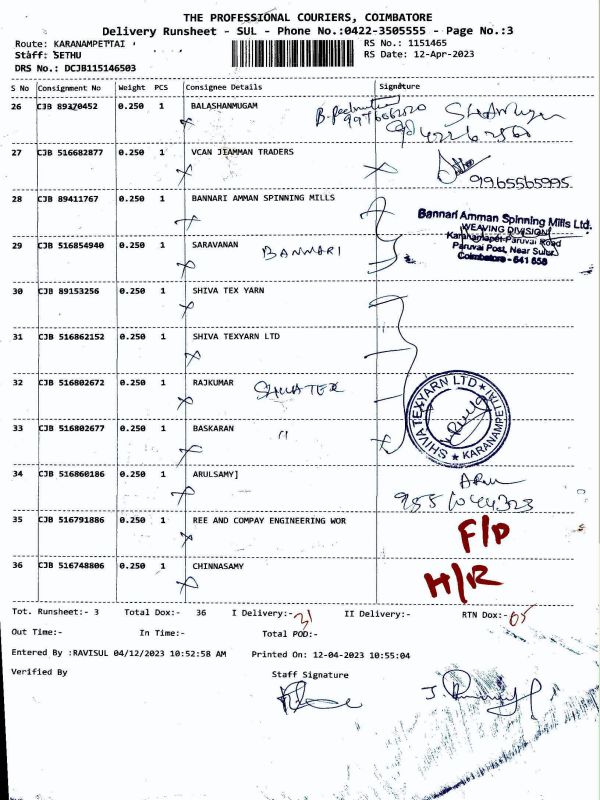 THE PROFESSIONAL COURIERS, COIMBATORE
Delivery Runsheet - SUL - Phone No.:0422-3505555 - Page No.:3
Route: KARANAMPETTAI
RS No.: 1151465
Staff: SETHU
RS Date: 12-Apr-2023
DRS No.: DCJB115146503
S No Consignment No Weight PCS Consignee Details Signature
26 CJB 89370452 0.250 1 BALASHANMUGAM
27 CJB 516682877 0.250 1 VCAN JIAMMAN TRADERS
9965565995
28 CJB 89411767 0.250 1 BANNARI AMMAN SPINNING MILLS
Bannari Amman Spinning Mills Ltd.
WEAVING DIVISION
Karanampet-Paruvai Road
Paruvai Post, Near Sulur
Coimbatore - 641 658
29 CJB 516854940 0.250 1 SARAVANAN BANNARI
30 CJB 89153256 0.250 1 SHIVA TEX YARN
31 CJB 516862152 0.250 1 SHIVA TEXYARN LTD
32 CJB 516802672 0.250 1 RAJKUMAR SHIVATEX
SHIVA TEXYARN LTD ★ KARANAMPETTAI ★
33 CJB 516802677 0.250 1 BASKARAN 11
34 CJB 516860186 0.250 1 ARULSAMY]
35 CJB 516791886 0.250 1 REE AND COMPAY ENGINEERING WOR F/D
36 CJB 516748806 0.250 1 CHINNASAMY H/R
Tot. Runsheet:- 3 Total Dox:- 36 I Delivery:- 31 II Delivery:- RTN Dox:- 05
Out Time:- In Time:- Total POD:-
Entered By :RAVISUL 04/12/2023 10:52:58 AM Printed On: 12-04-2023 10:55:04
Verified By Staff Signature